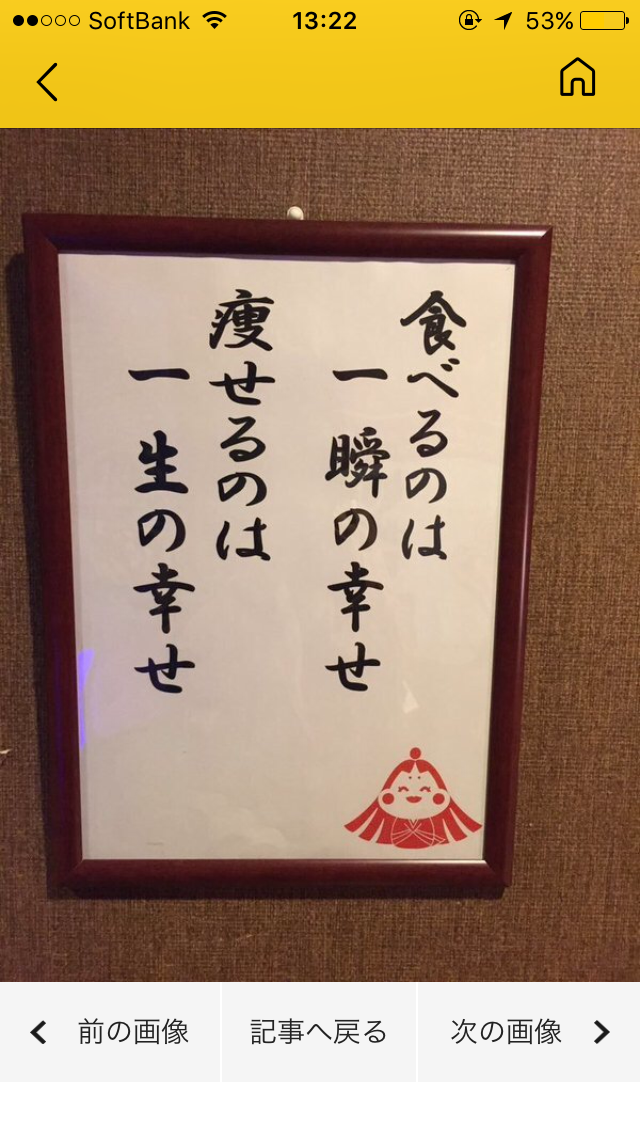 SoftBank 13:22 53%
食べるのは
一瞬の幸せ
痩せるのは
一生の幸せ
前の画像 記事へ戻る 次の画像